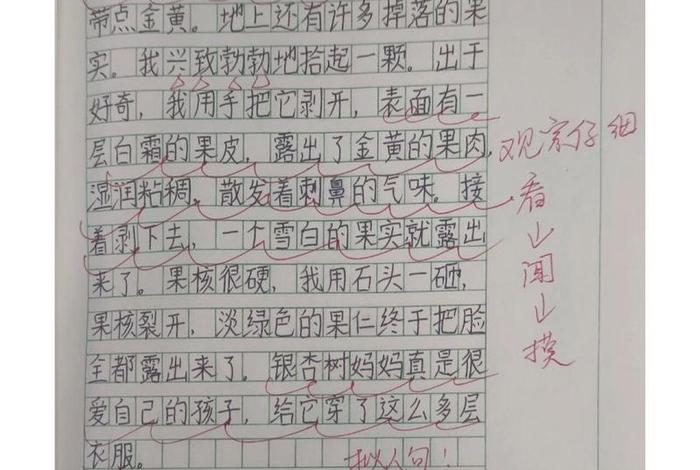 带点金黄。地上还有许多掉落的果
实。我兴致勃勃地拾起一颗。出于
好奇，我用手把它剥开，表面有一
层白霜的果皮，露出了金黄的果肉，
湿润粘稠。散发着刺鼻的气味。接
着剥下去，一个雪白的果实就露出
来了。果核很硬，我用石头一砸，
果核裂开，淡绿色的果仁终于把脸
全都露出来了。银杏树妈妈真是很
爱自己的孩子，给它穿了这么多层
衣服。
拟人句！
观察仔细
看
↓
闻
↓
摸